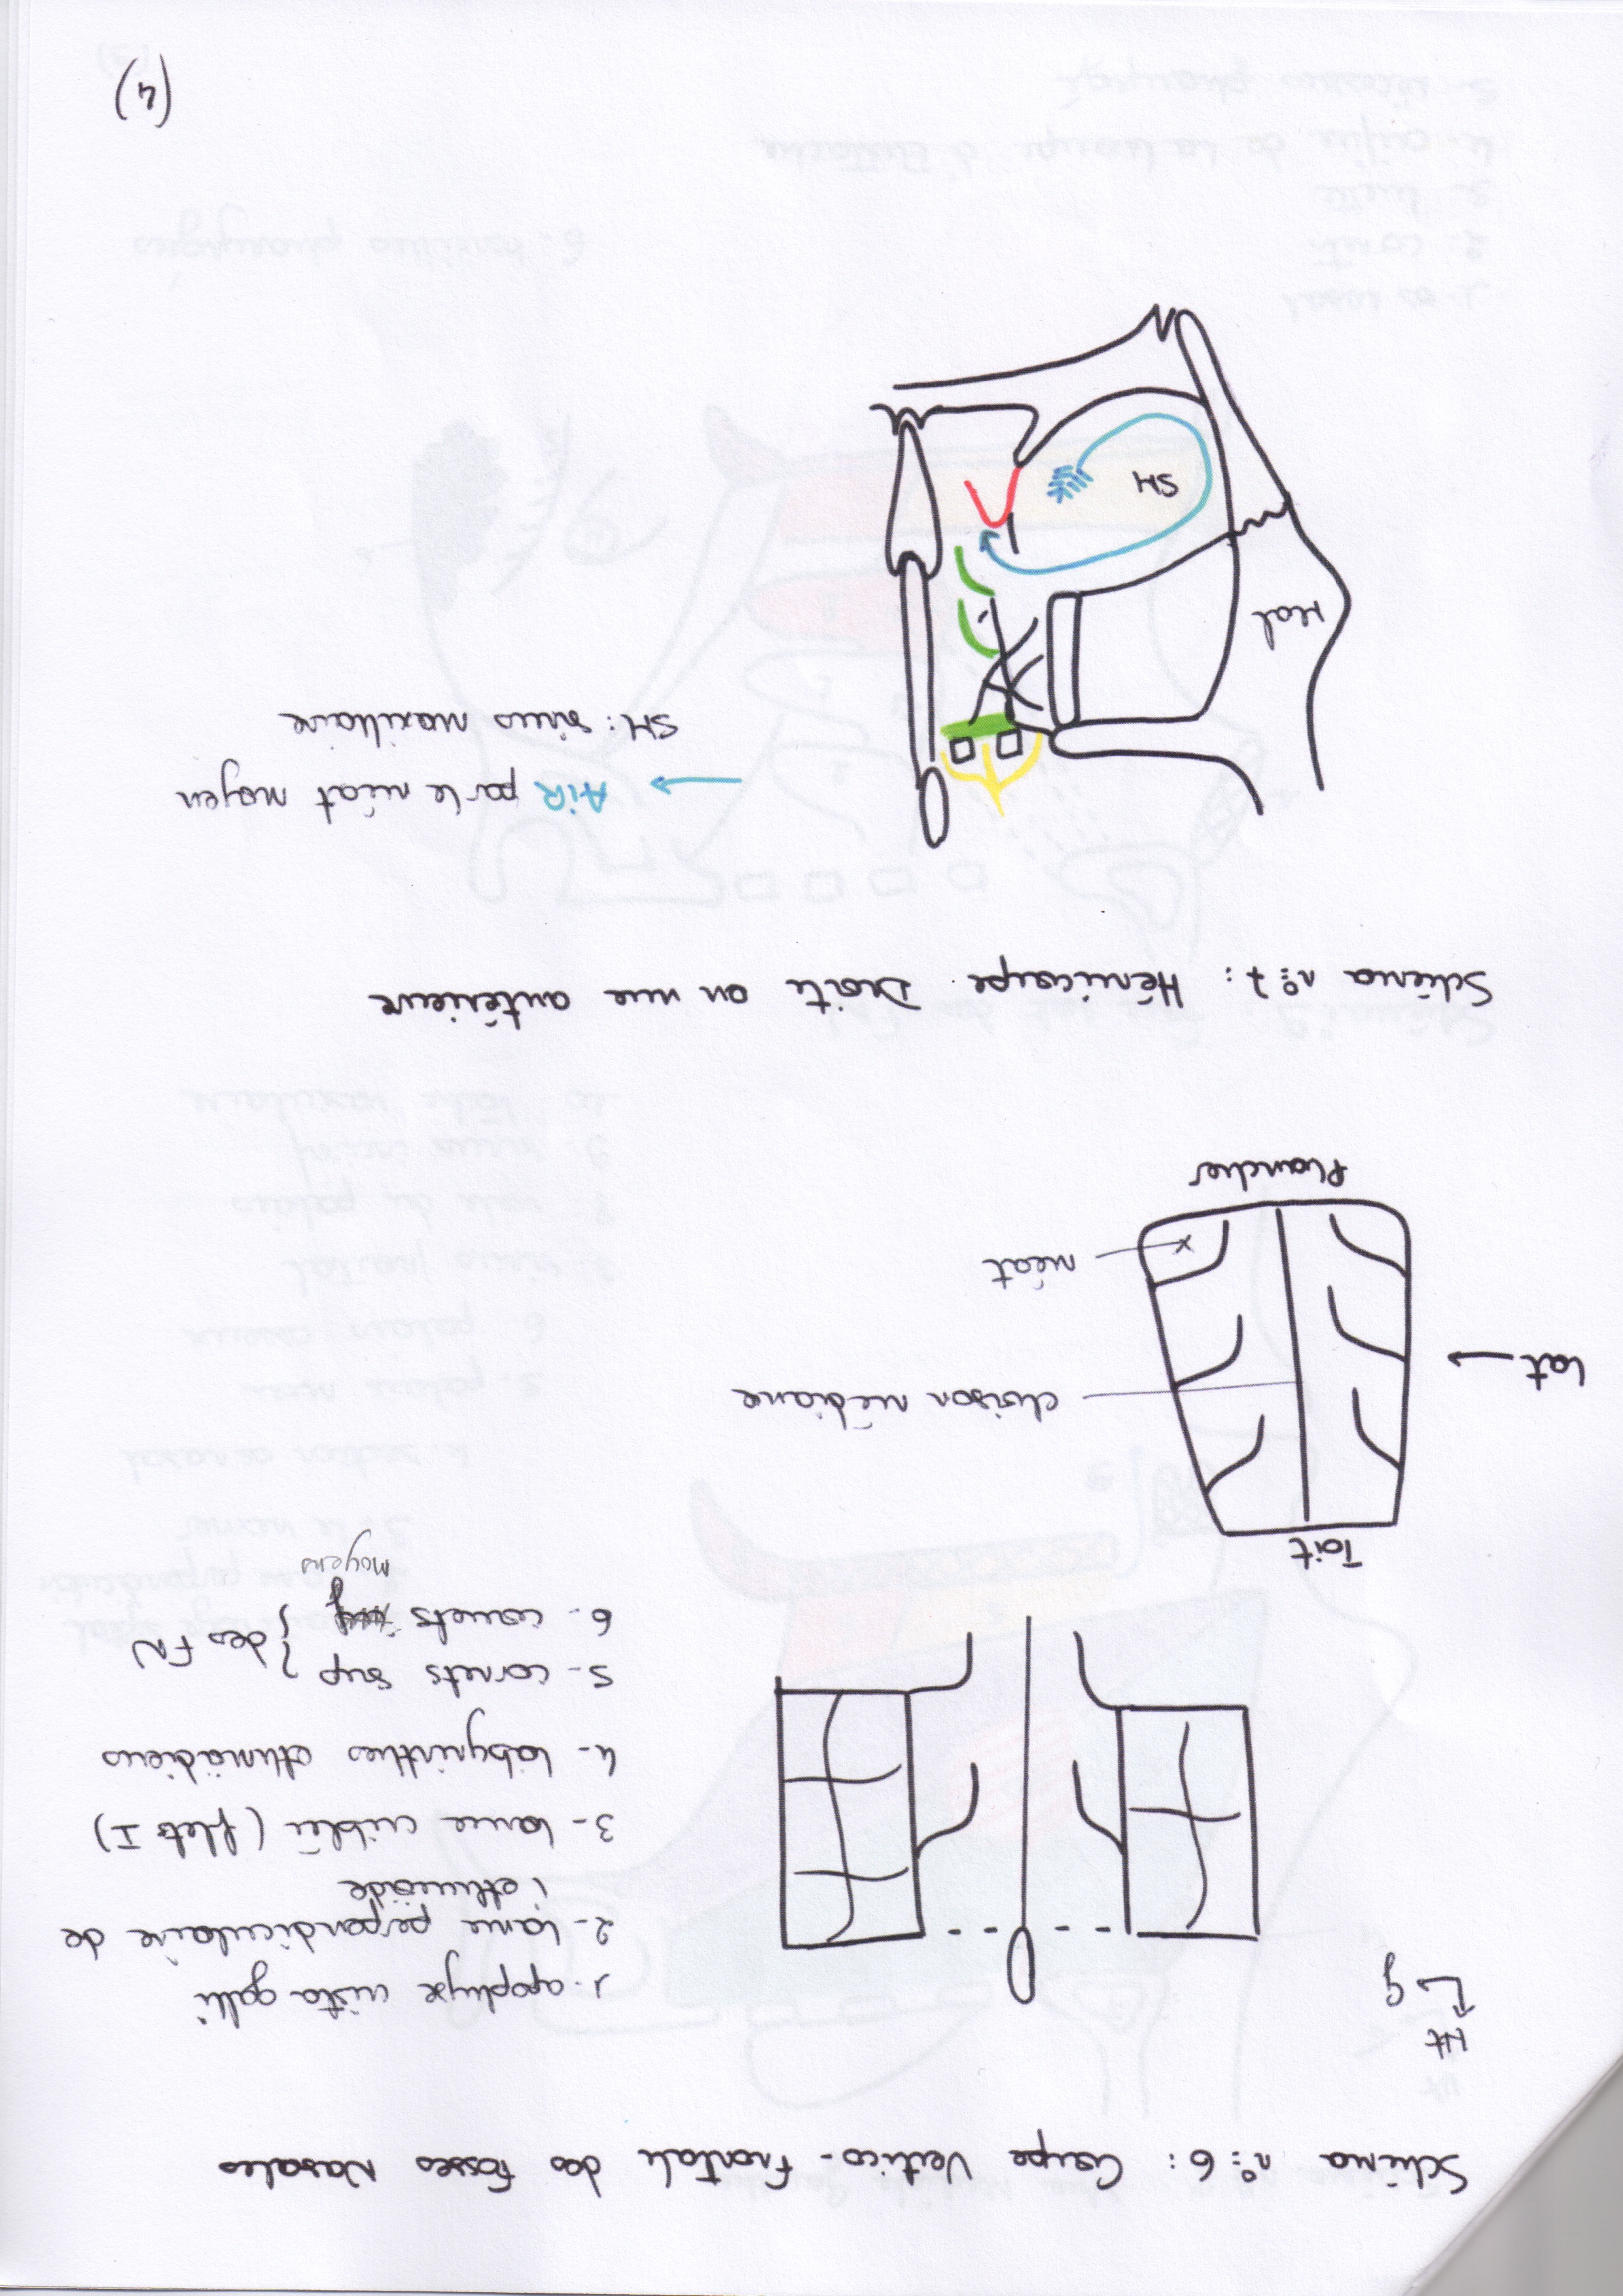 Schéma n°6 : Coupe Vertico-Frontale des Fosses Nasales
Ht
g
1- apophyse crista galli
2- lame perpendiculaire de
l'ethmoïde
3- lame criblée (filets I)
4- labyrinthes ethmoïdiens
5- cornets sup } des FN
6- cornets
moyens
Toit
Lat
cloison médiane
méat
Plancher
Schéma n°7 : Hémicoupe Droite en vue antérieure
AiR par le méat moyen
SM : sinus maxillaire
Mal
SM
(4)